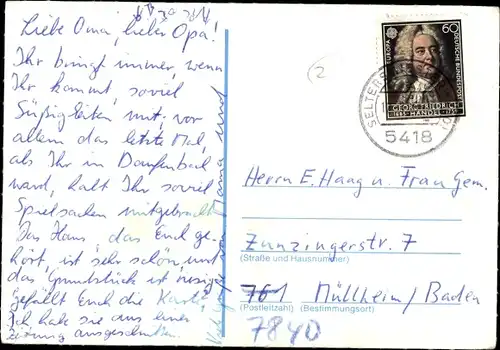 Liebe Oma, lieber Opa!
Ihr bringt immer, wenn
Ihr kommt, soviel
Süßigkeiten mit, vor
allem das letzte Mal,
als Ihr in
ward, habt Ihr soviel
Spielsachen mitgebracht.
Das Haus, das Euch ge-
hört ist sehr schön, und
das Grundstück ist riesig.
Gefällt Euch die Karte?
Ich habe sie aus einer
Zeitung ausgeschnitten.
Viele Grüße von Mama und
2
EUROPA
60
DEUTSCHE BUNDESPOST
GEORG FRIEDRICH
1685 HÄNDEL
SELTERS
5418
Herrn E. Haag u. Frau Gem.
Zunzingerstr. 7
(Straße und Hausnummer)
761 Müllheim/Baden
(Postleitzahl) (Bestimmungsort)
7840